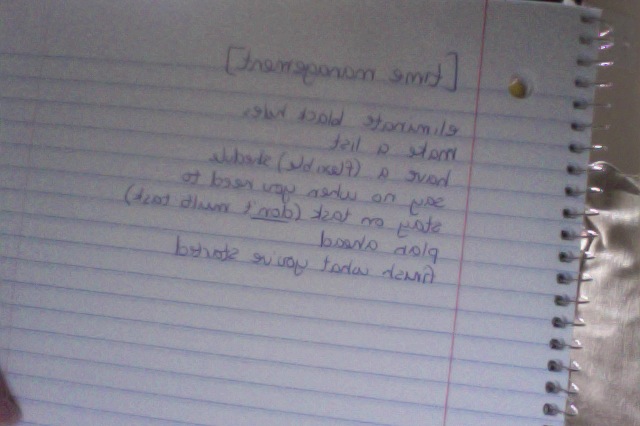 [time management]
eliminate black holes
make a list
have a (flexible) schedule
say no when you need to
stay on task (don't multi task)
plan ahead
finish what you've started